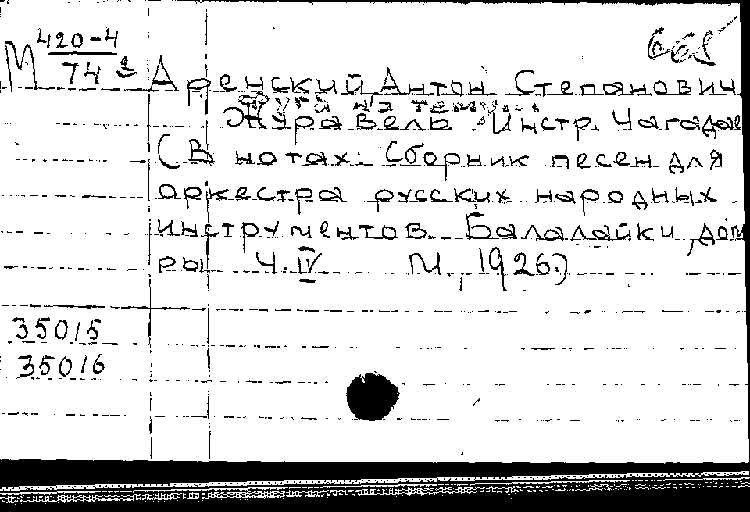 665
М 420-4
74 г
Аренский Антон Степанович
Фуга на тему...
Журавель Инстр. Чагадае
(В нотах: Сборник песен для
оркестра русских народных
инструментов. Балалайки, дом
ры Ч. IV М., 1926.)
35015
35016